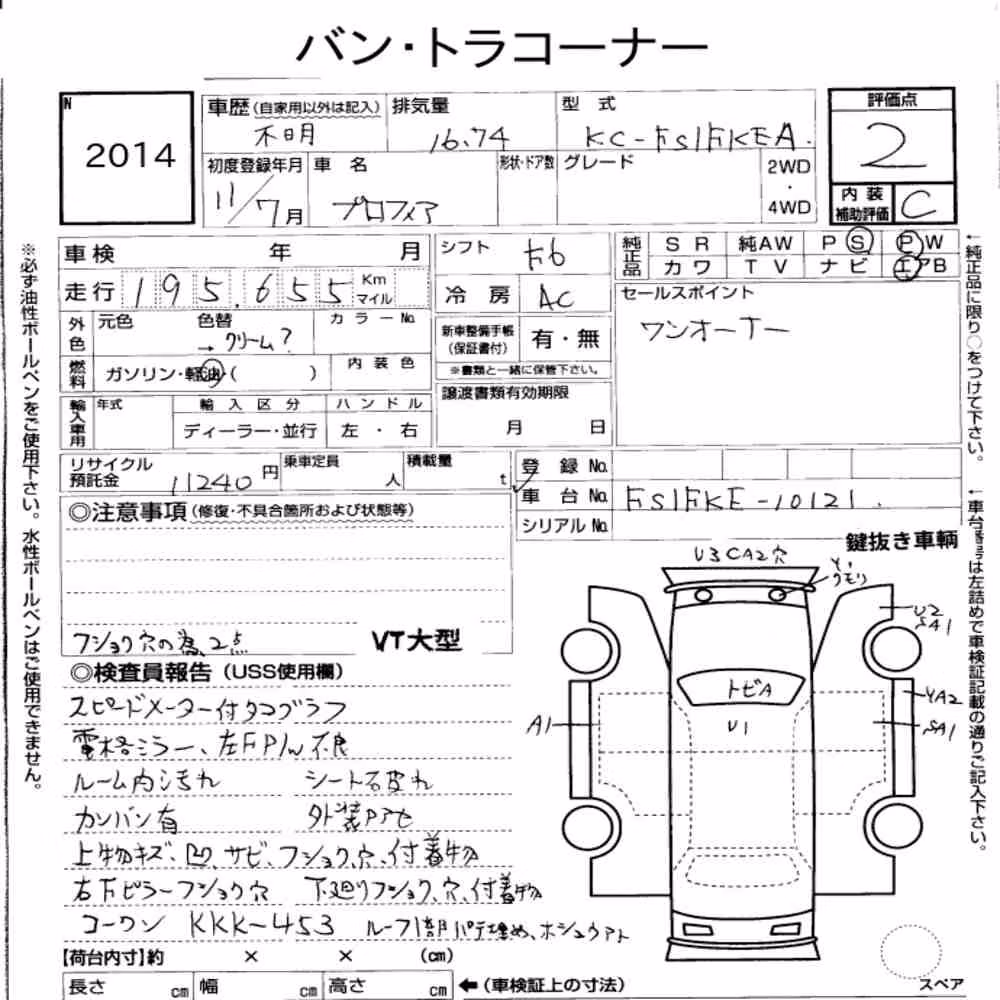 バン・トラコーナー
N
2014
車歴(自家用以外は記入)
不明
排気量
16.74
型 式
KC-FS1FKEA.
評価点
2
内装
補助評価
C
初度登録年月
11/7月
車 名
プロフィア
形状・ドア数
グレード
2WD
・
4WD
車検 年 月
走行 195,655 Km マイル
シフト F6
冷 房 AC
純正品
SR 純AW PS PW
カワ TV ナビ エアB
セールスポイント
ワンオーナー
外色
元色 色替 カラーNo.
→ クリーム?
燃料
ガソリン・軽油( )
内装色
新車整備手帳
(保証書付)
有・無
※書類と一緒に保管下さい。
輸入車用
年式
輸入区分 ハンドル
ディーラー・並行 左・右
譲渡書類有効期限
月 日
リサイクル
預託金 11240 円
乗車定員 人
積載量 t
登 録 No.
車 台 No. FS1FKE-10121.
シリアル No.
◎注意事項(修復・不具合箇所および状態等)
フショク穴の為、2点
VT大型
鍵抜き車輌
◎検査員報告(USS使用欄)
スピードメーター付タコグラフ
電格ミラー、左FP/W不良
ルーム内汚れ シート右破れ
カンバン有
上物キズ、凹、サビ、フショク、穴、付着物
右下ピラーフショク穴 下廻りフショク、穴、付着物
コーワン KKK-453
U3CA2穴
Y,
クモリ
U2
SA1
トビA
U1
A1
YA2
SA1
スペア
【荷台内寸】約 × × (cm)
長さ cm 幅 cm 高さ cm ←(車検証上の寸法)
※必ず油性ボールペンをご使用下さい。水性ボールペンはご使用できません。
←純正品に限り○をつけて下さい。
←車台番号は左詰めで車検証記載の通りご記入下さい。